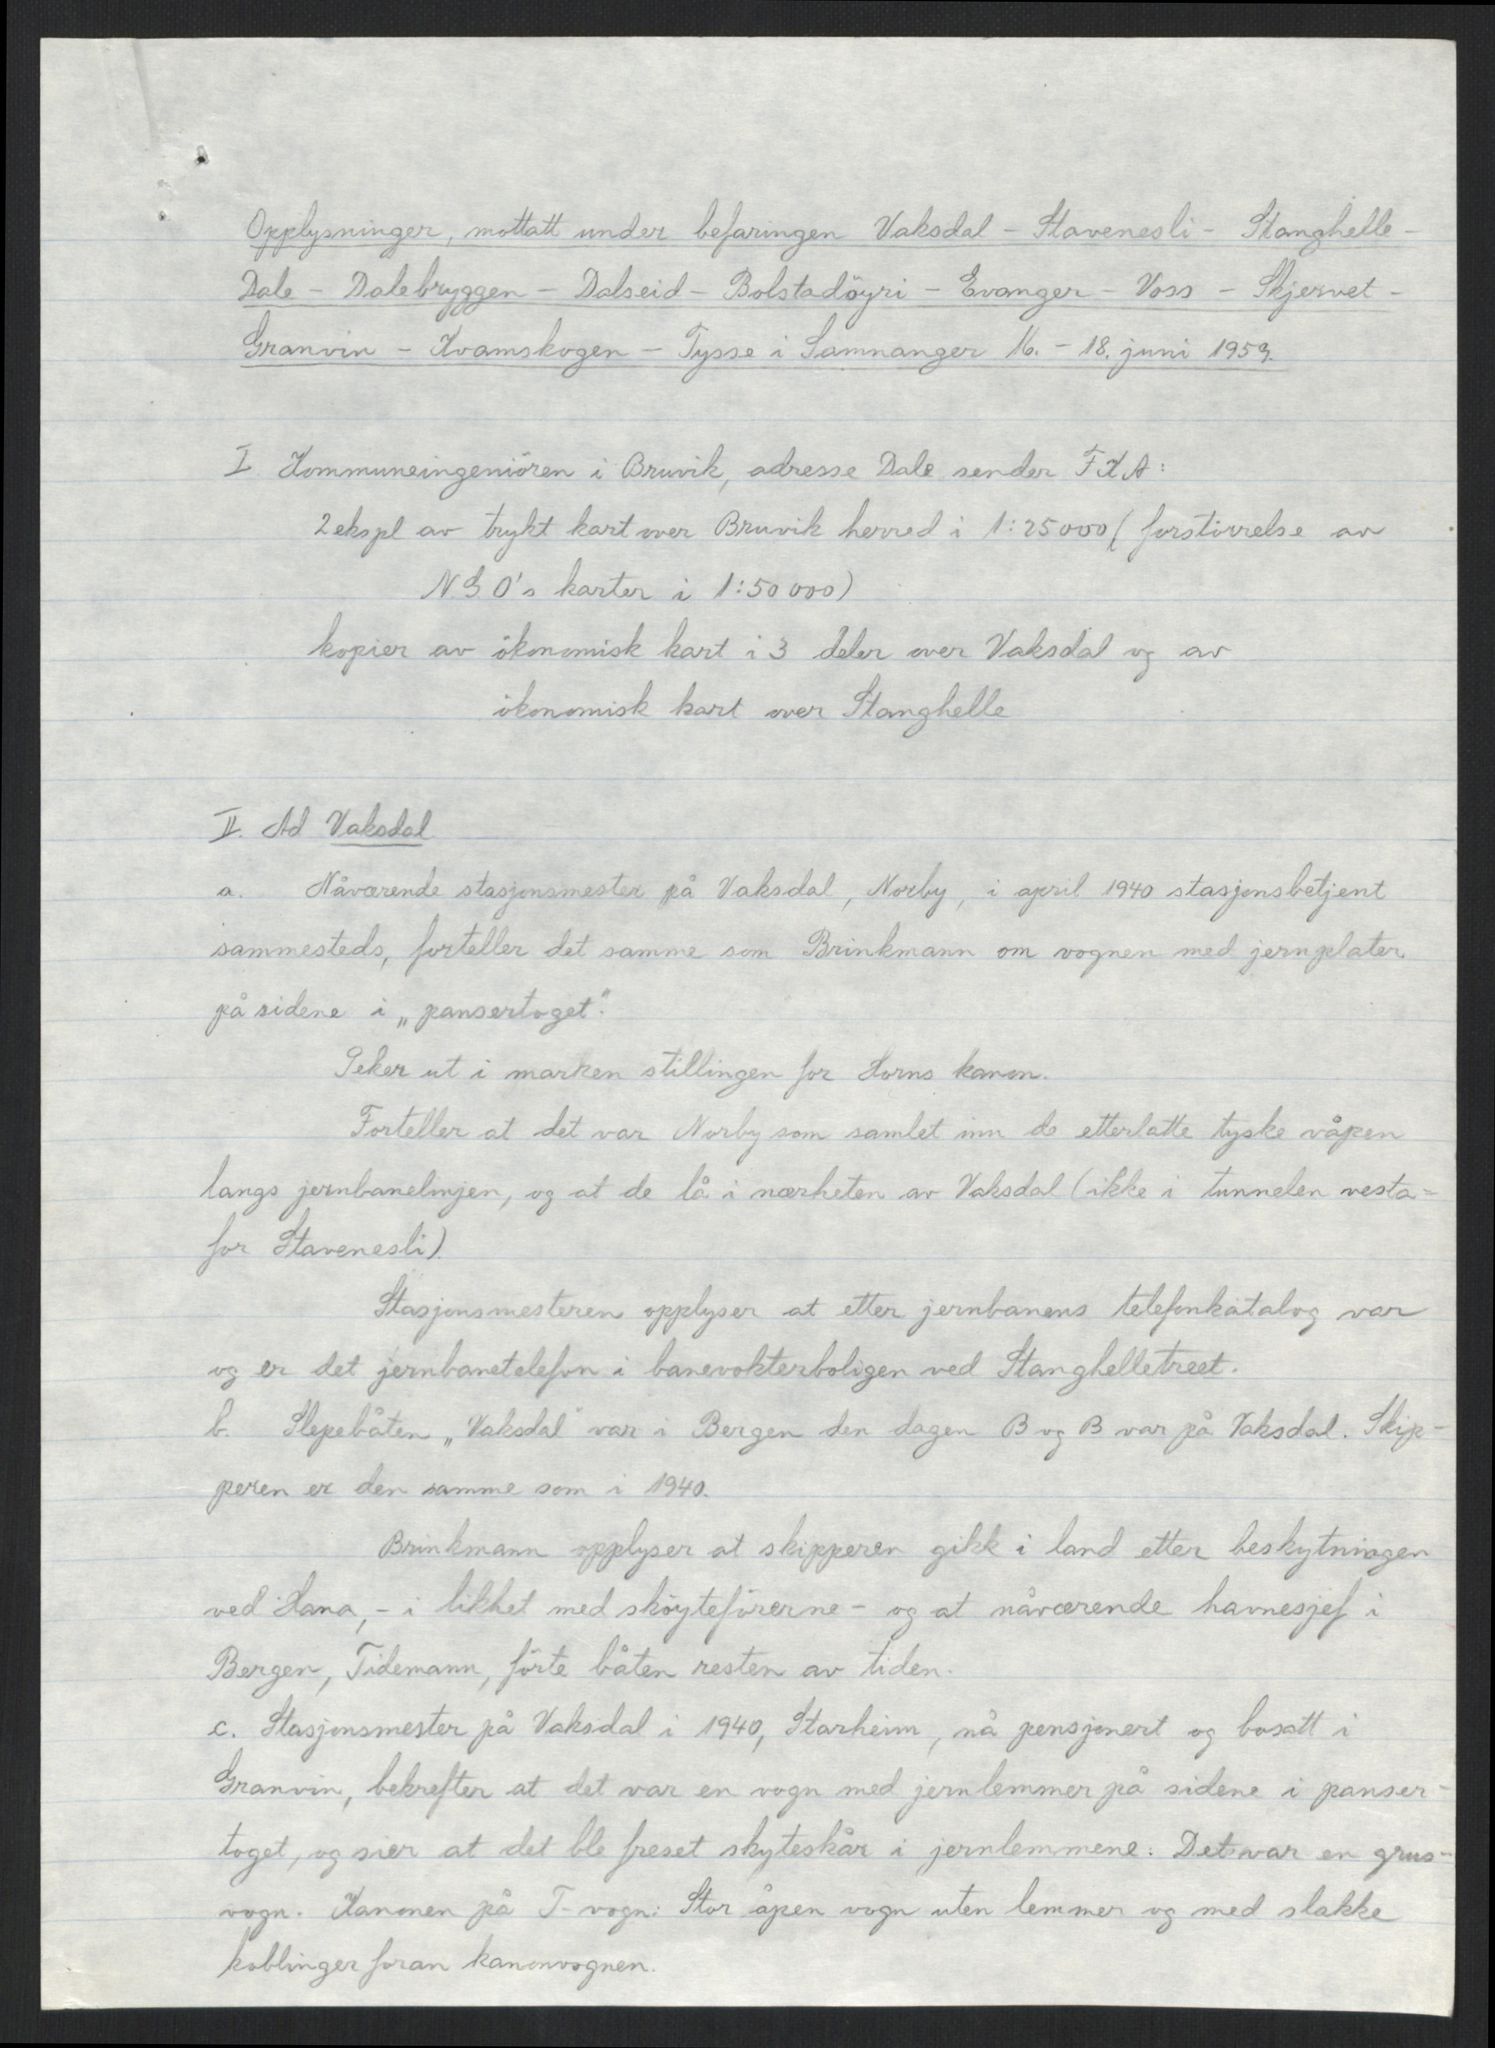 Opplysninger, mottatt under befaringen Vaksdal – Stavenesli – Stanghelle –
Dale – Dalebryggen – Dalseid – Bolstadöyri – Evanger – Voss – Skjervet –
Granvin – Kvamskogen – Tysse i Samnanger 16. – 18. juni 1959.
I Kommuneingeniören i Bruvik, adresse Dale sender FKA:
2 ekspl av trykt kart over Bruvik herred i 1:25000 (forstörrelse av
NGO's karter i 1:50 000)
kopier av ökonomisk kart i 3 deler over Vaksdal og av
ökonomisk kart over Stanghelle
II. Ad Vaksdal
a. Nåværende stasjonsmester på Vaksdal, Norby, i april 1940 stasjonsbetjent
sammesteds, forteller det samme som Brinkmann om vognen med jernplater
på sidene i „pansertoget".
Peker ut i marken stillingen for Horns kanon.
Forteller at det var Norby som samlet inn de etterlatte tyske våpen
langs jernbanelinjen, og at de lå i nærheten av Vaksdal (ikke i tunnelen vesta=
for Stavenesli)
Stasjonsmesteren opplyser at etter jernbanens telefonkatalog var
og er det jernbanetelefon i banevokterboligen ved Stanghelletreet.
b. Slepebåten „Vaksdal" var i Bergen den dagen B og B var på Vaksdal. Skip-
peren er den samme som i 1940.
Brinkmann opplyser at skipperen gikk i land etter beskytningen
ved Hana, – i likhet med sköyteförerne – og at nåværende havnesjef i
Bergen, Tidemann, förte båten resten av tiden.
c. Stasjonsmester på Vaksdal i 1940, Starheim, nå pensjonert og bosatt i
Granvin, bekrefter at det var en vogn med jernlemmer på sidene i panser-
toget, og sier at det ble freset skyteskår i jernlemmene: Det var en grus-
vogn. Kanonen på T-vogn: Stor åpen vogn uten lemmer og med slakke
koblinger foran kanonvognen.